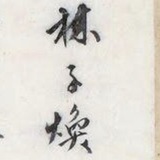 林子煥